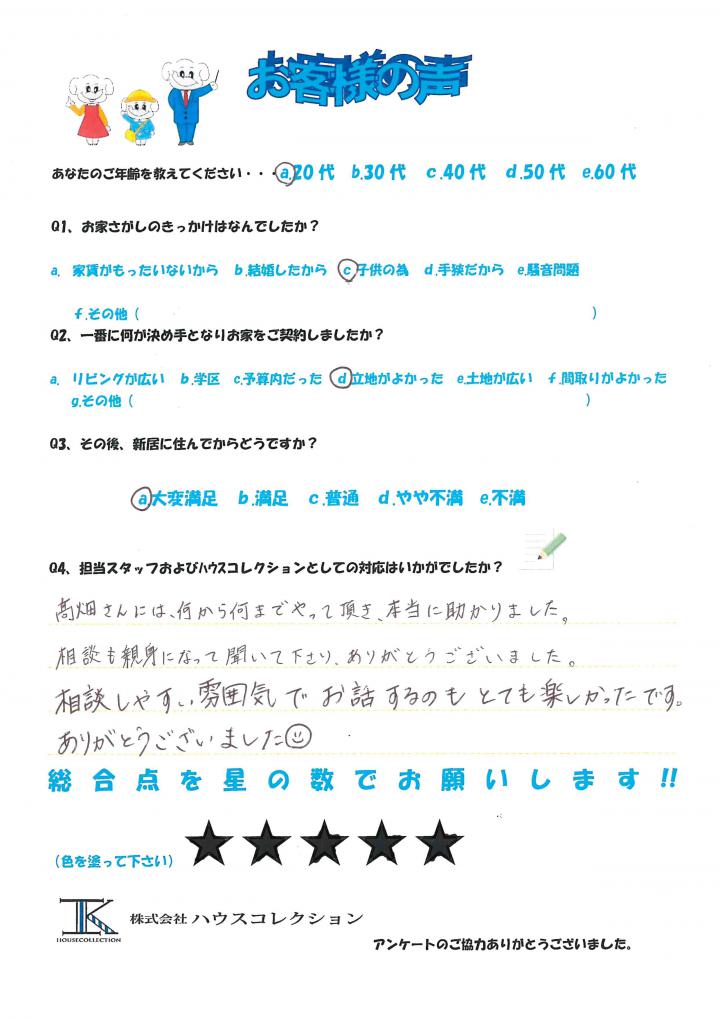 お客様の声
あなたのご年齢を教えてください・・・a.20代 b.30代 c.40代 d.50代 e.60代
Q1、お家さがしのきっかけはなんでしたか？
a. 家賃がもったいないから b.結婚したから c子供の為 d.手狭だから e.騒音問題
f.その他（ ）
Q2、一番に何が決め手となりお家をご契約しましたか？
a. リビングが広い b.学区 c.予算内だった d立地がよかった e.土地が広い f.間取りがよかった
g.その他（ ）
Q3、その後、新居に住んでからどうですか？
a.大変満足 b.満足 c.普通 d.やや不満 e.不満
Q4、担当スタッフおよびハウスコレクションとしての対応はいかがでしたか？
髙畑さんには、何から何までやって頂き、本当に助かりました。
相談も親身になって聞いて下さり、ありがとうございました。
相談しやすい雰囲気でお話するのもとても楽しかったです。
ありがとうございました☺
総合点を星の数でお願いします!!
（色を塗って下さい） ★★★★★
株式会社 ハウスコレクション
HOUSECOLLECTION
アンケートのご協力ありがとうございました。